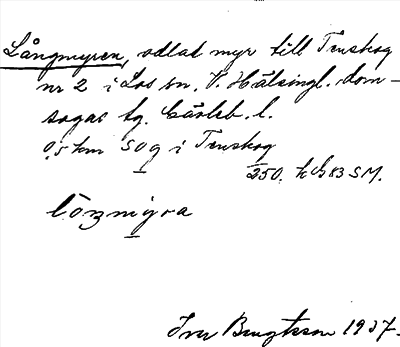 Långmyren, odlad myr till Tenskog
nr 2 i Los sn. V. Hälsingl. dom-
sagas tg. Gävleb. l.
0,5 km SO g i Tenskog
250. h G 83 SM.
lōŋmȳra
Iver Bengtsson 1937.